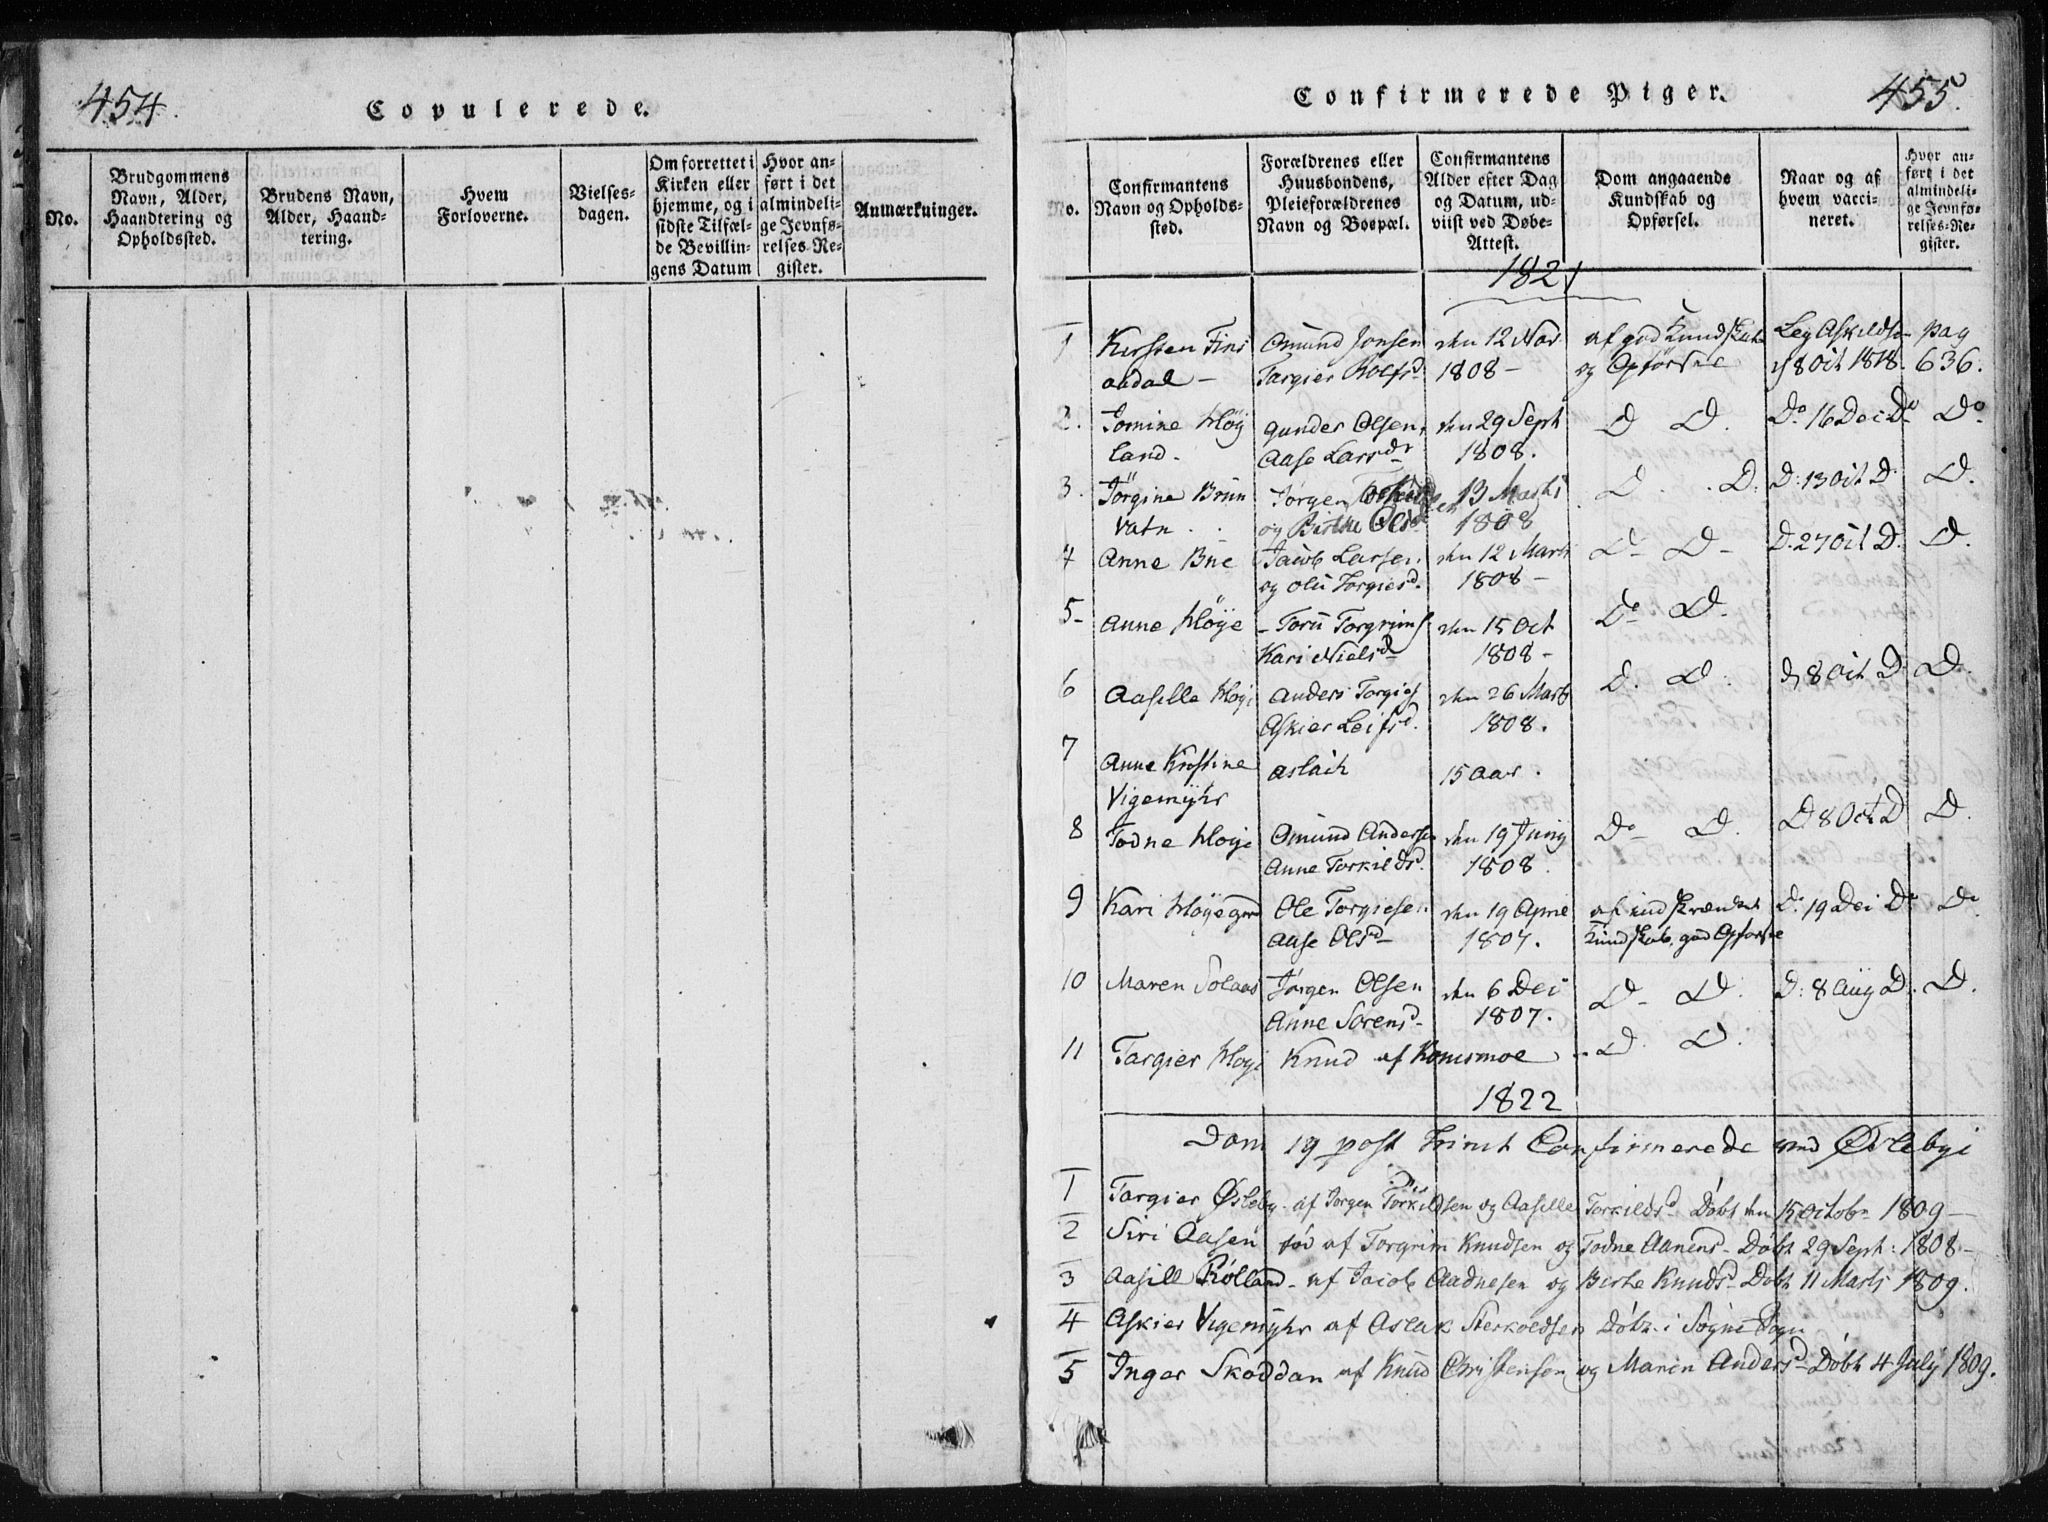 454.
Copulerede.
No.
Brudgommens Navn, Alder, Haandtering og Opholdssted.
Brudens Navn, Alder, Haandtering.
Hvem Forloverne.
Vielsesdagen.
Om forrettet i Kirken eller hjemme, og i sidste Tilfælde Bevillingens Datum
Hvor anført i det almindelige Jevnførelses-Register.
Anmærkninger.
Confirmerede Piger.
455.
No.
Confirmantens Navn og Opholdssted.
Forældrenes eller Huusbondens, Pleieforældrenes Navn og Boepæl.
Confirmantens Alder efter Dag og Datum, udviist ved Døbe-Attest.
Dom angaaende Kundskab og Opførsel.
Naar og af hvem vaccineret.
Hvor anført i det almindelige Jevnførelses-Register.
1821
1 Kirsten Fins Omund Jonsen den 12 Nov af god Kundskab Leg Askildsen pag
aadal – Targier Rolfsd 1808 – og Opførsel 18 Oct 1818. 636.
2. Gomine Høy Gunder Olsen, den 29 Sept D D. Do 16 Dec Do Do
land. Aase Larsd 1808.
3. Jørgine Brun Jørgen 13 Marts D. D. D. 13 Oct D. D.
vatn og Birthe Olsd 1808
4 Anne Bue Jacob Larsen den 12 Marts D – D – D. 27 Oct D. D.
og Olu Torgiersd. 1808 –
5 – Anne Høye – Toru Torgrims den 15 Oct Do D –
Kari Nielsd 1808 –
6 Aasille Høye Anders Torgies den 26 Marts D. D. 8 Oct D. D.
Askier Leifsd. 1808.
7 Anne Kirstine Aslach 15 aar.
Vigemyhr
8 Todne Høye Omund Andersen den 19 Juny Do – D. D 8 Oct D D.
Anne Torkildsd. 1808.
9 Kari Høyegrd Ole Torgiesen den 19 April af indskrænket D. 19 Dec Do Do
Aase Olsd – 1807. Kundskab, god Opførsel
10 Maren Solaas Jørgen Olsen den 6 Dec D – D. D: 8 Aug D. D.
Anne Sørensd – 1807.
11 Targier Høye Knud af Konsmoe – D. D.
1822
Dom 19 post Trinit Confirmerede ved Øslebye
1 Targier Øsleby af Jørgen Torkildsen og Aasille Torkildsd Døbt den 15 Octobr 1809 –
2 Siri Aasen fød af Torgrim Knudsen og Todne Aanensd – Døbt 29 Sept: 1808 –
3 Aasill Rolland – af Jacob Aadnesen og Birthe Knudsd – Døbt 11 Marts 1809.
4 Askier Vigemyhr af Aslak Sterkoldsen Døbt i Søgne Sogn
5 Inger Skoddan af Knud Christensen og Maren Andersd – Døbt 4 July 1809.